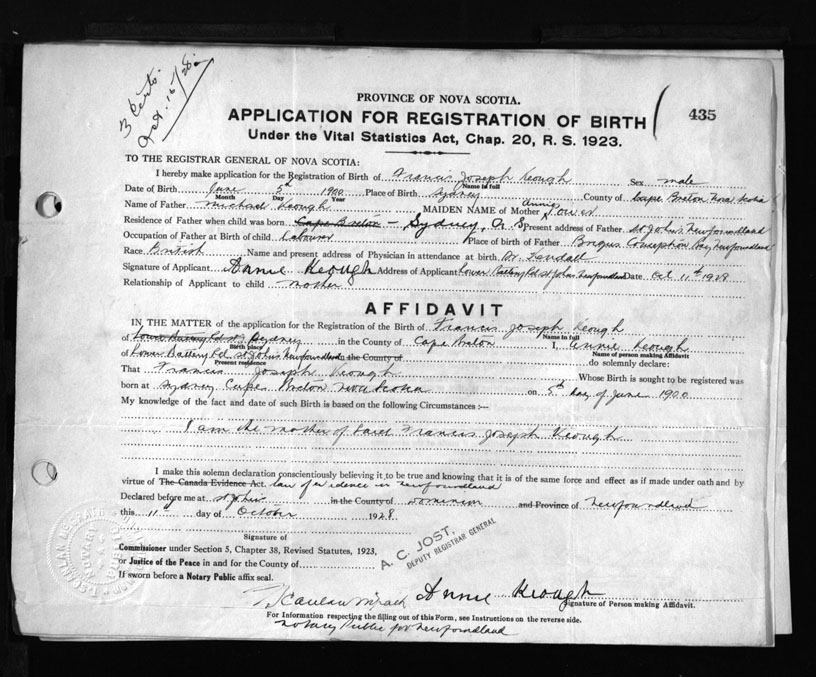 3 Certs.
Oct. 15/28.
PROVINCE OF NOVA SCOTIA.
435
APPLICATION FOR REGISTRATION OF BIRTH
Under the Vital Statistics Act, Chap. 20, R. S. 1923.
TO THE REGISTRAR GENERAL OF NOVA SCOTIA:
I hereby make application for the Registration of Birth of Francis Joseph Keough Sex male
Name in full
Date of Birth June 5th 1900 Place of Birth Sydney County of Cape Breton Nova Scotia
Month Day Year
Name of Father Michael Keough MAIDEN NAME of Mother Annie Power
Residence of Father when child was born Cape Breton - Sydney, Present address of Father St John's Newfoundland
Occupation of Father at Birth of child Labourer Place of birth of Father Brigus Conception Bay, Newfoundland
Race British Name and present address of Physician in attendance at birth Dr. Kendall
Signature of Applicant Annie Keough Address of Applicant Lower Battery Rd St John's Newfoundland Date Oct 11th 1928
Relationship of Applicant to child mother
AFFIDAVIT
IN THE MATTER of the application for the Registration of the Birth of Francis Joseph Keough
Name in full
of Lower Battery Rd Sydney in the County of Cape Breton I, Annie Keough
Birth place Name of person making Affidavit
of Lower Battery Rd St John's Newfoundland in the County of do solemnly declare:
Present residence
That Francis Joseph Keough Whose Birth is sought to be registered was
born at Sydney Cape Breton Nova Scotia on 5th day of June 1900
My knowledge of the fact and date of such Birth is based on the following Circumstances :—
I am the mother of said Francis Joseph Keough
I make this solemn declaration conscientiously believing it to be true and knowing that it is of the same force and effect as if made under oath and by
virtue of The Canada Evidence Act. law of evidence in Newfoundland
Declared before me at St John's in the County of Dominion and Province of Newfoundland
this 11 day of October 1928
Signature of
Commissioner under Section 5, Chapter 38, Revised Statutes, 1923,
or Justice of the Peace in and for the County of
If sworn before a Notary Public affix seal.
A. C. JOST,
DEPUTY REGISTRAR GENERAL
Annie Keough
Signature of Person making Affidavit.
For Information respecting the filling out of this Form, see Instructions on the reverse side.
Notary Public for Newfoundland